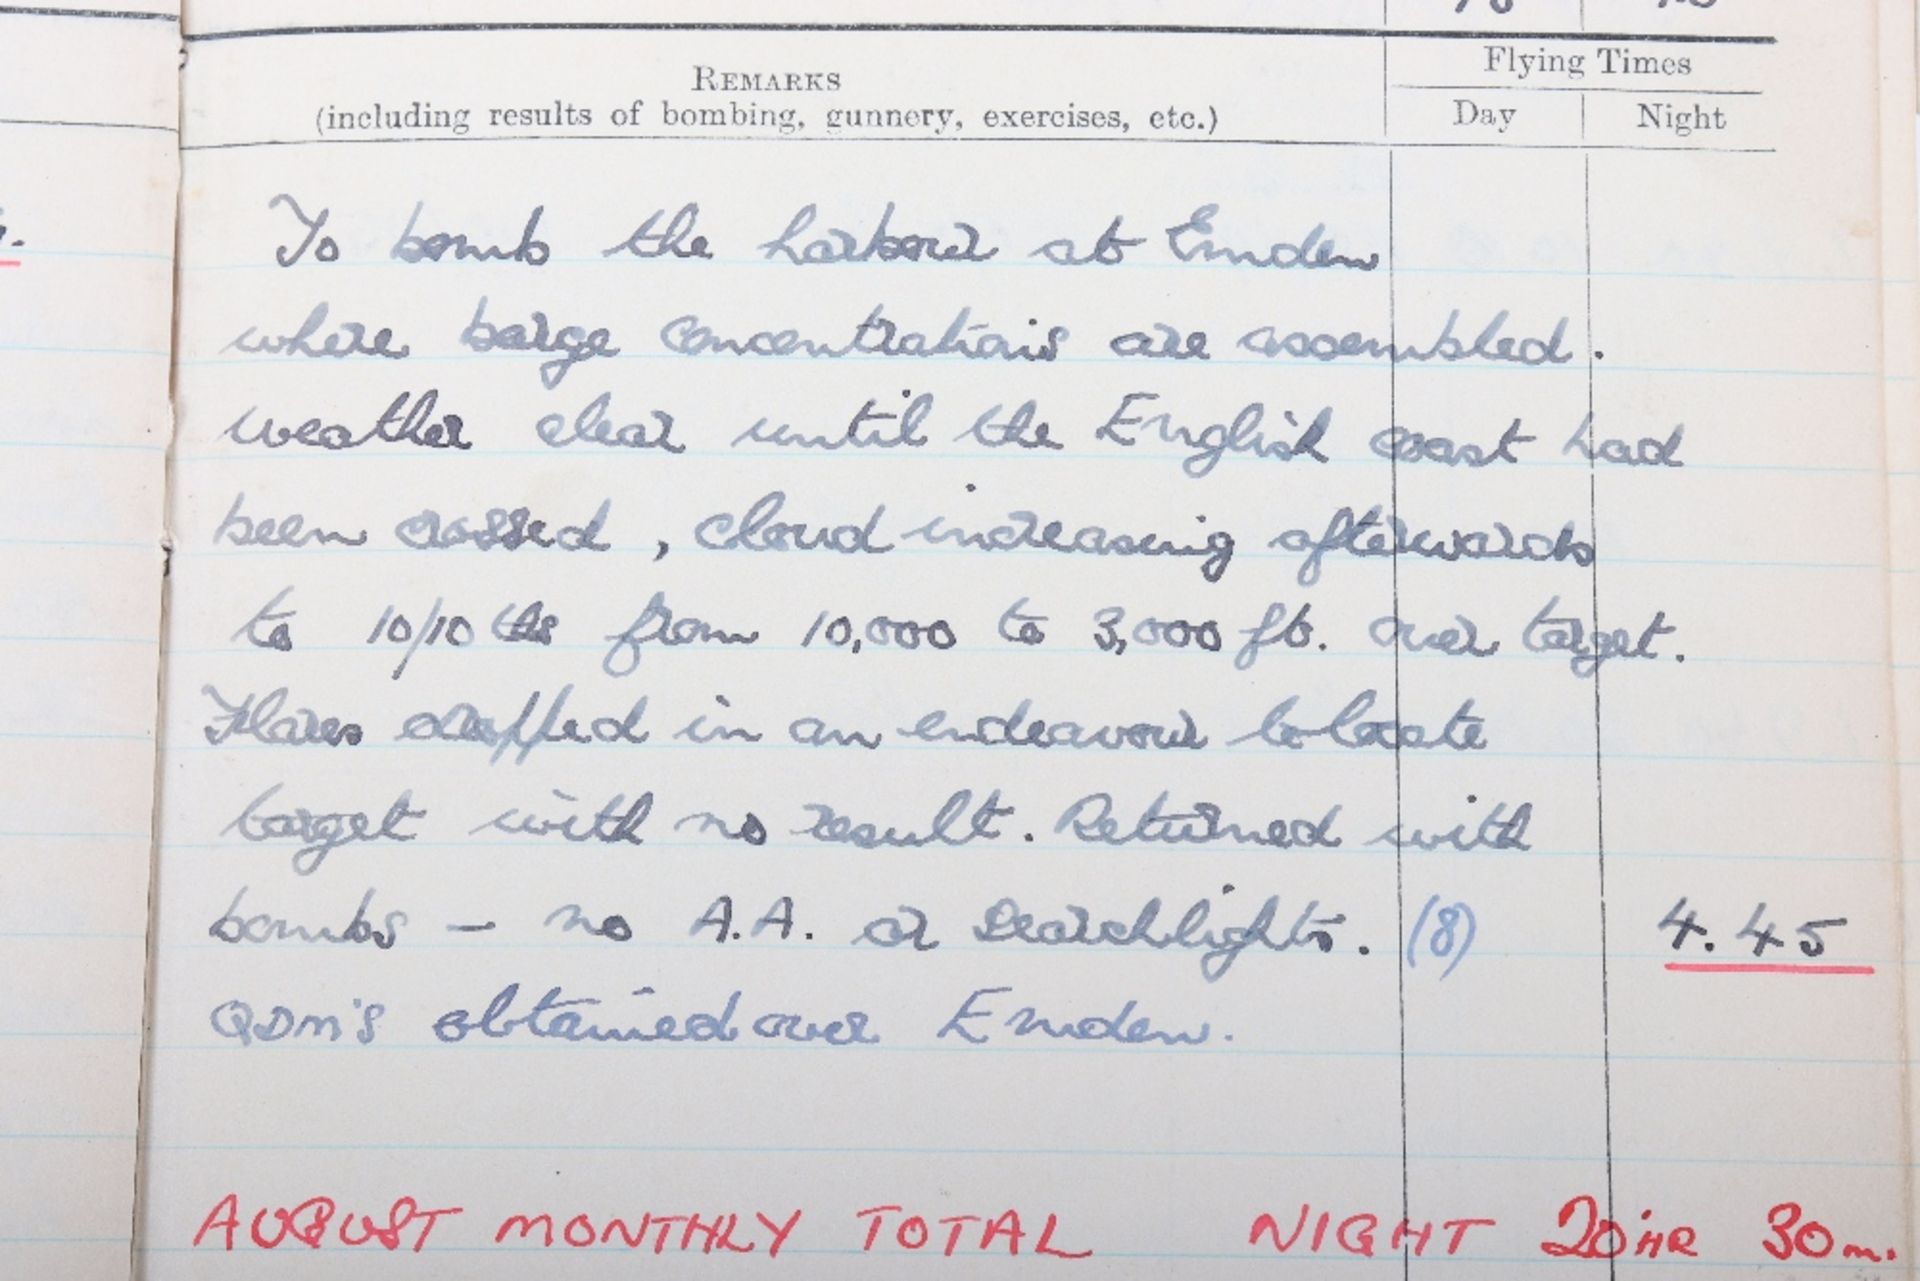 Flying Times
REMARKS
(including results of bombing, gunnery, exercises, etc.)
Day
Night
To bomb the harbour at Emden
where barge concentrations are assembled.
weather clear until the English coast had
been crossed, cloud increasing afterwards
to 10/10 ths from 10,000 to 3,000 ft. over target.
Flares dropped in an endeavour to locate
target with no result. Returned with
bombs – no A.A. or Searchlights. (8) 4.45
QDM'S obtained over Emden.
AUGUST MONTHLY TOTAL NIGHT 20 HR 30 m.